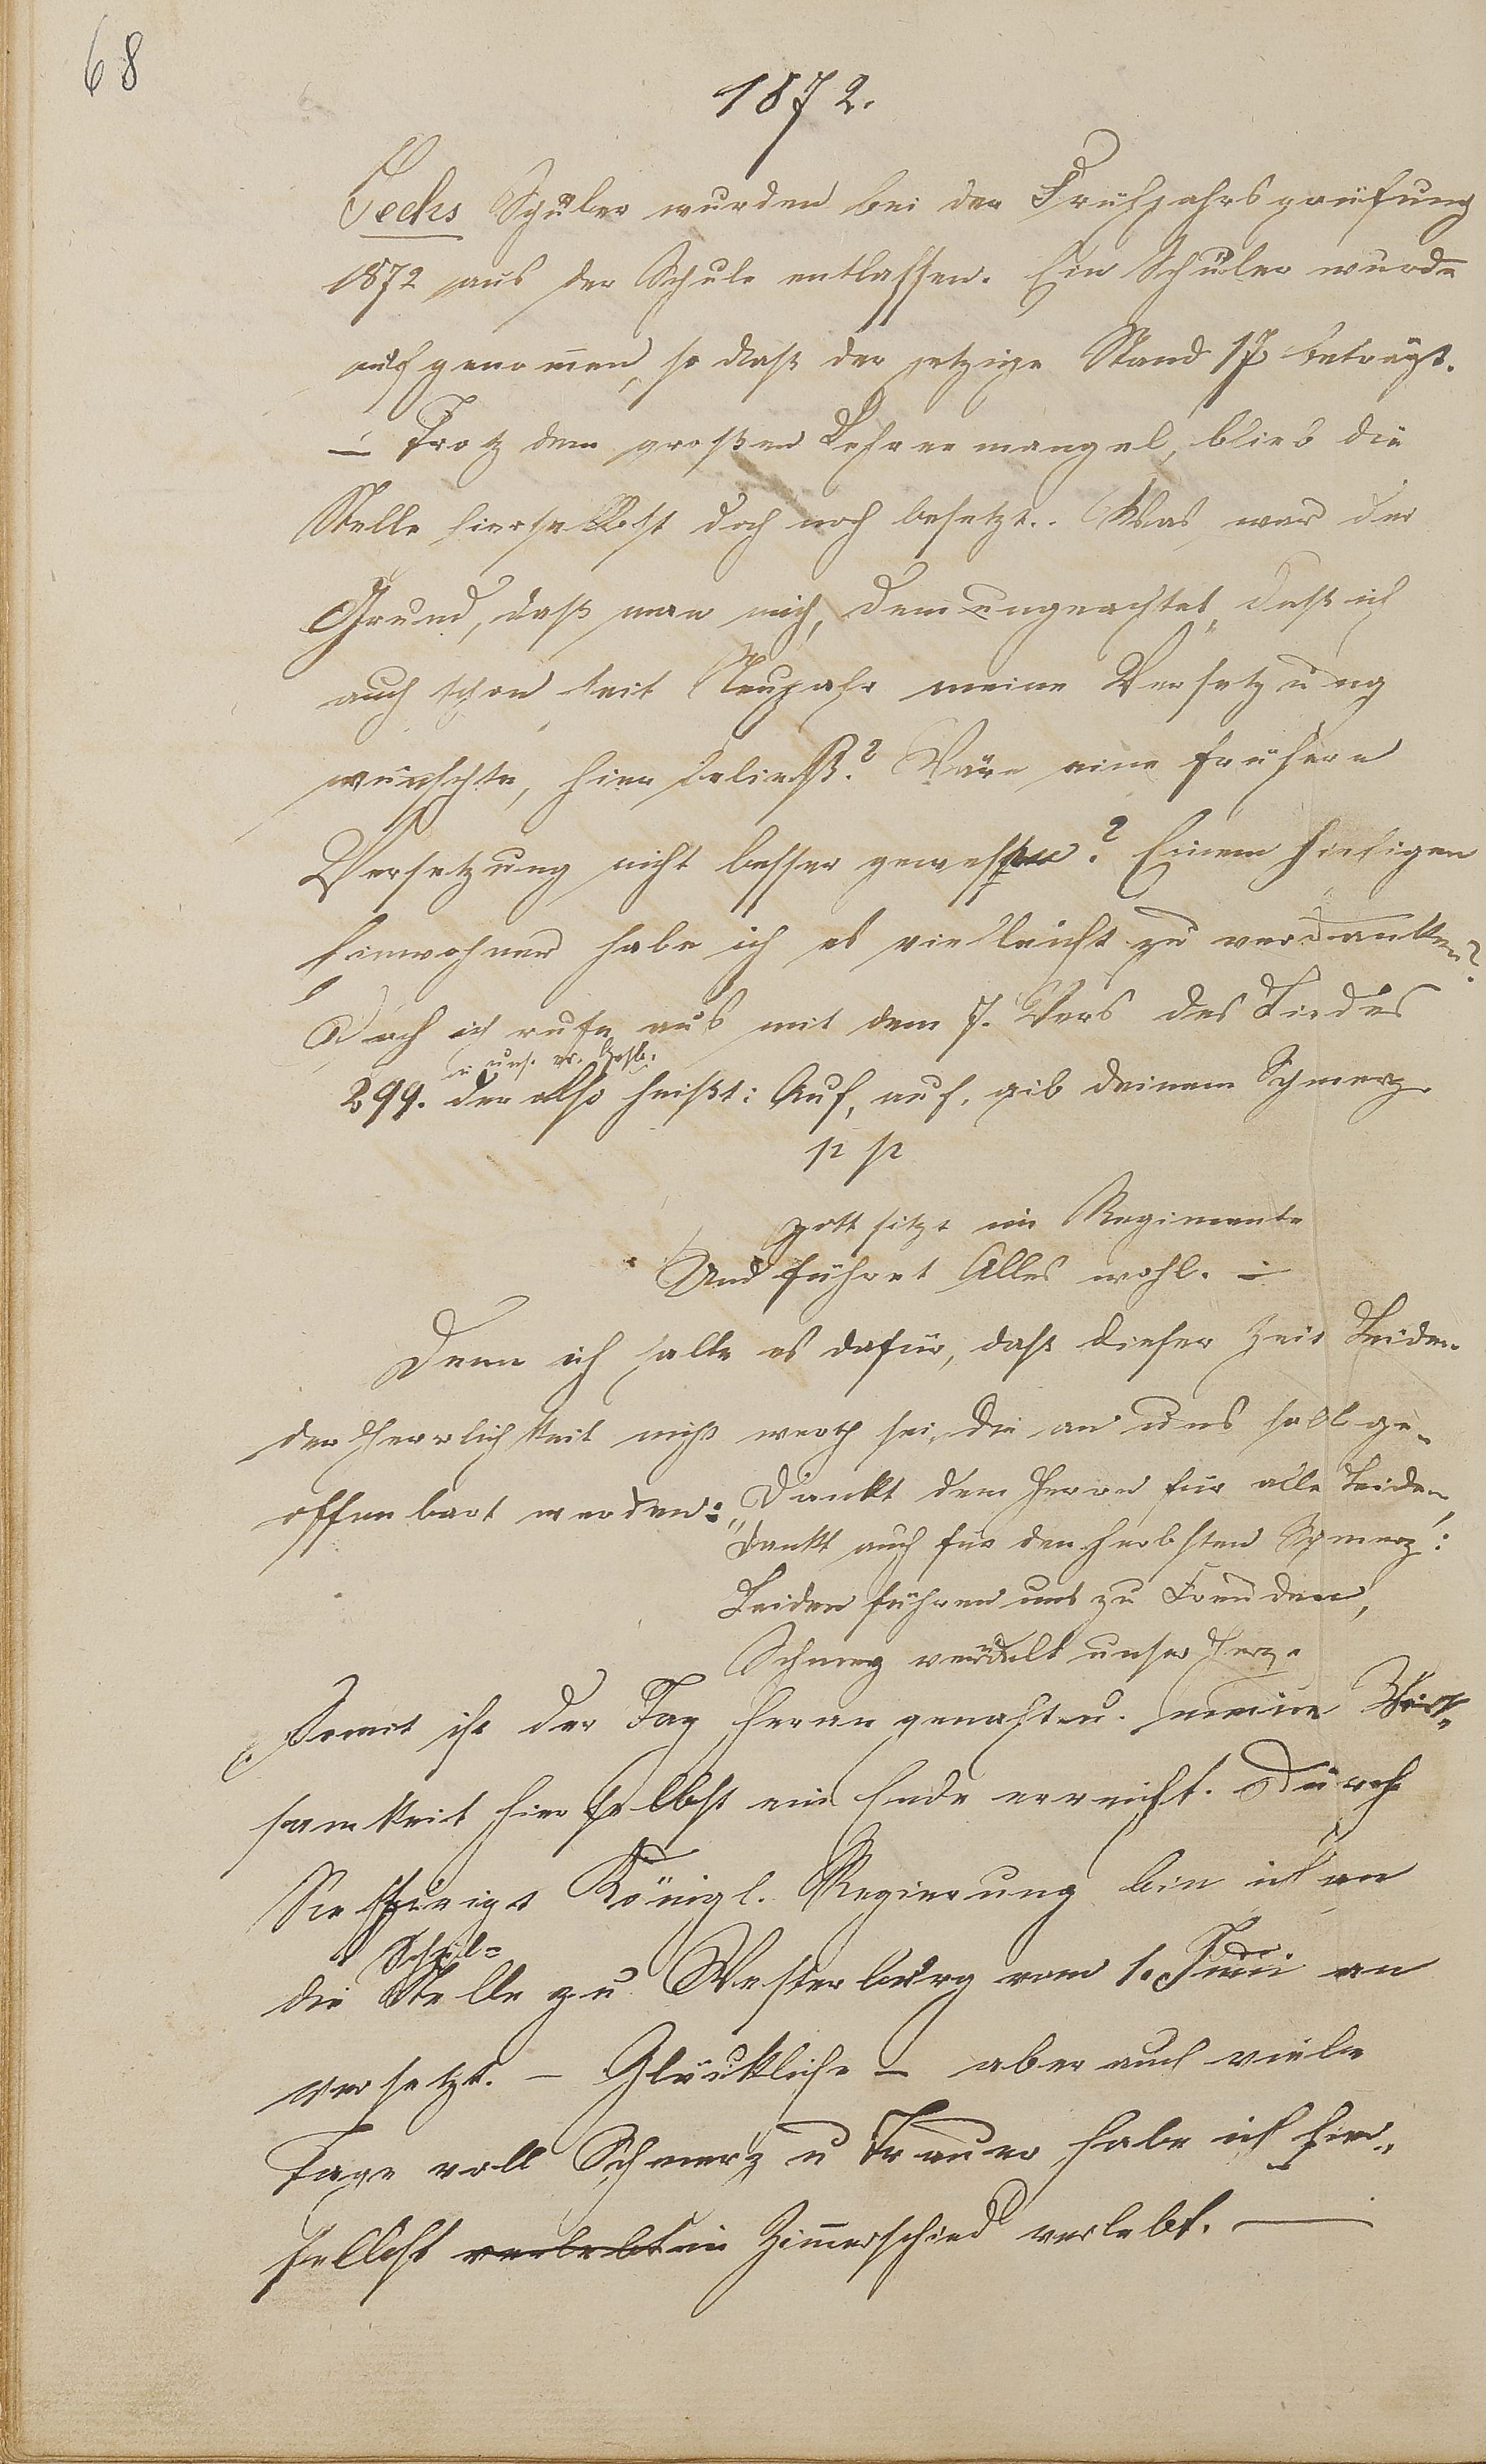 68
1872.
Sechs Schüler wurden bei der Frühjahrsprüfung
1872 aus der Schule entlassen. Ein Schüler wurde
aufgenommen, so daß der jetzige Stand 17 beträgt.
– Trotz dem großen Lehrermangel, blieb die
Stelle hierselbst doch noch besetzt. Was war der
Grund, daß man mich, demungeachtet, daß ich
auch schon seit Neujahr meine Versetzung
wünschte, hier beließ? Wäre eine frühere
Versetzung nicht besser gewesen? Einem hiesigen
Einwohner habe ich es vielleicht zu verdanken?
Doch ich rufe aus mit dem 7. Vers des Liedes
in uns. Gesb.
299. der also heißt: Auf, auf, gib deinem Schmerz
pp
Gott sitzt im Regimente
Und führet Alles wohl. –
Denn ich halte es dafür, daß dieser Zeit Leiden
der Herrlichkeit nicht werth sei, die an uns soll ge-
offenbart werden: „Dankt dem Herrn für alle Leiden,
Dankt auch für den herbsten Schmerz:
Leiden führen uns zu Freuden,
Schmerz veredelt unser Herz.
Somit ist der Tag heran genaht u. meine Wirk-
samkeit hierselbst ein Ende erreicht. Durch
Königl. Regierung bin ich an
Schul-
die Stelle zu Westerburg vom 1. Juni an
versetzt. – Glückliche – aber auch viele
Tage voll Schmerz u Trauer habe ich hier-
selbst verlebt in Zimmerschied verlebt. –